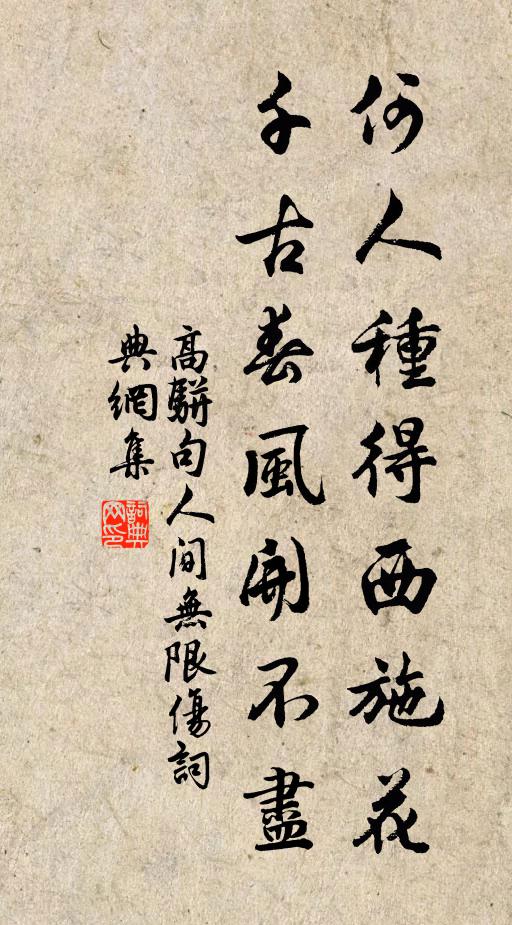 何人種得西施花
千古春風開不盡
高駢句人間無限傷詞
典網集
詞典網印